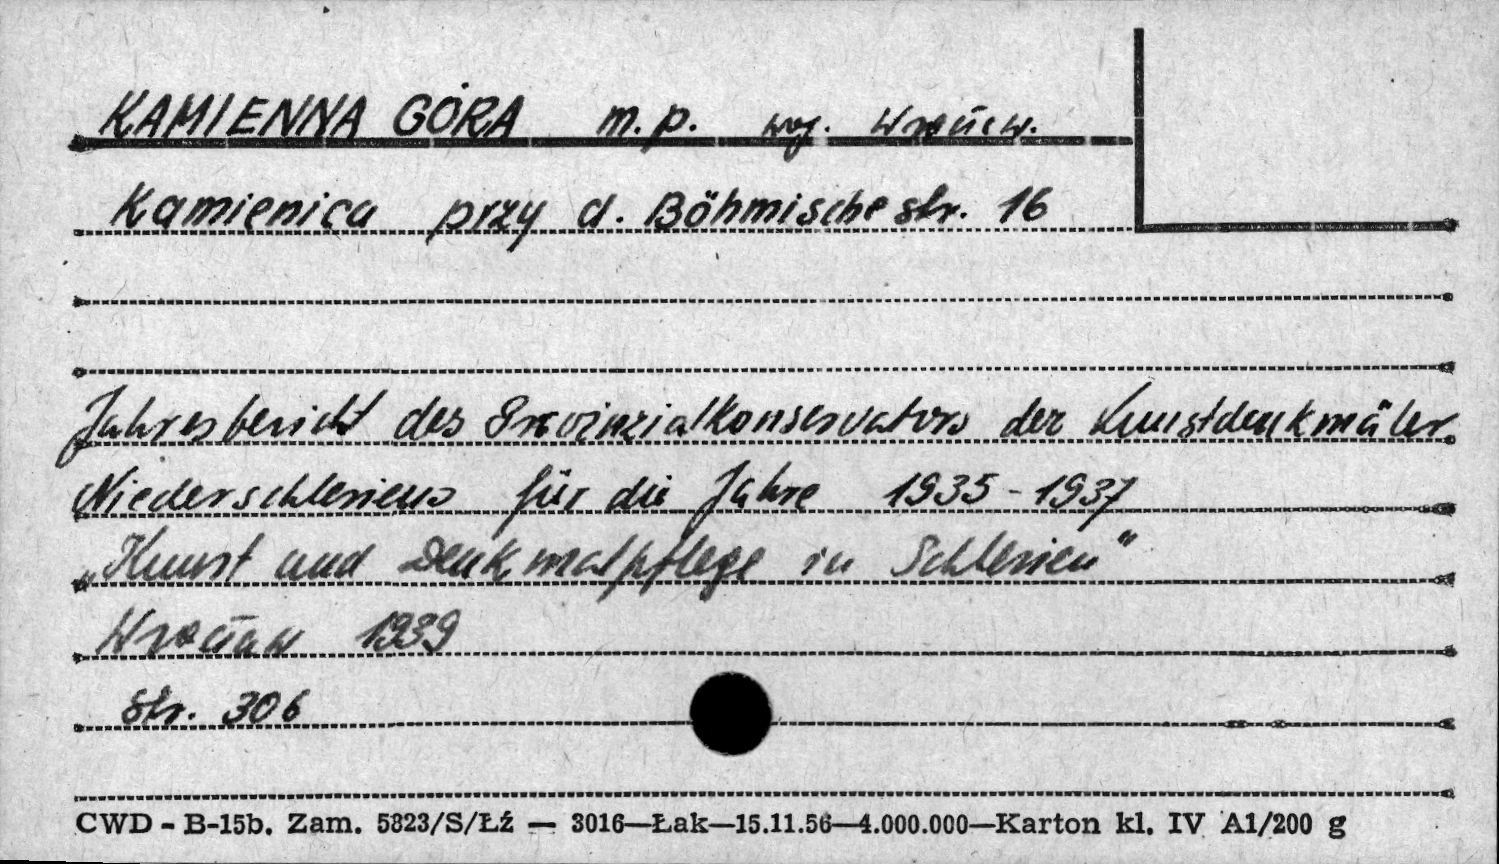 KAMIENNA GÓRA m.p. woj. Wrocław.
Kamienica przy d. Böhmische str. 16
Jahresbericht des Provinzialkonservators der Kunstdenkmäler
Niederschlesiens für die Jahre 1935-1937
„Kunst und Denkmalpflege in Schlesien"
Wrocław 1939
Str. 306
CWD - B-15b. Zam. 5823/S/Łź — 3016—Łak—15.11.56—4.000.000—Karton kl. IV A1/200 g